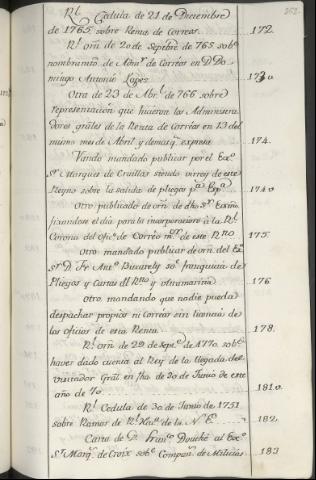 Rl. Cedula de 21 de Diciembre
de 1765 sobre Renta de Correos. 172.
Rl. orn. de 20 de Septbre de 765 sobe.
nombramto. de Admr. de Correos en Dn. Do-
mingo Antonio Lopez
Otra de 23 de Abrl. de 766 sobre
representacion que hicieron los Administra-
dores grales de la Renta de Correos en 13 del
mismo mes de Abril, y demas q. expresa 174.
Vando mandado publicar por el Exo.
Sr. Marques de Cruillas siendo virrey de este
Reyno sobre la salida de pliegos pa. Espa. 174 v.
Otro publicado de orn. de dho. Sr. Exmo.
fixandose el dia para la incorporacion à la Rl.
Corona del ofico. de Correo mor. de este Rno. 175.
otro mandado publicar de orn. del Exo.
Sr. D. Fr. Anto. Bucarely soe. franquicia de
Pliegos y Cartas dl. Rno. y ultramarina 176
otro mandando que nadie pueda
despachar propios ni Correos sin licencia de
los oficios de esta Renta 178.
Rl. orn. de 22 de Sepe. de 1770. sobe.
haver dado cuenta al Rey de la llegada de
visitador Gral. en fha de 20 de Junio de este
año de 70 181 v.
Rl. Cedula de 30 de Junio de 1751
sobre Ramos de Rl. Haza. de la N. E. 182.
Carta de D. Franco. Douché al Exo.
Sr. Marqs. de Croix sobe. Compañs. de Milicias 183